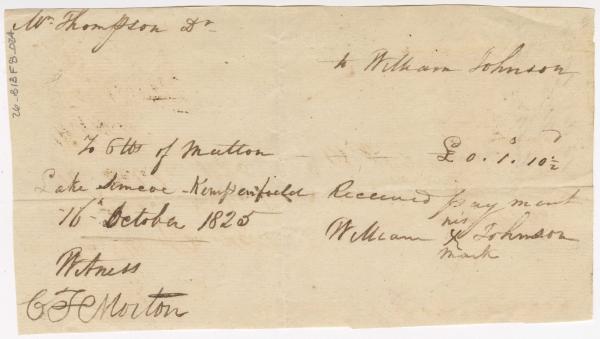 Mr. Thompson Dr
to William Johnson
s d
To 6 lbs of Mutton £ 0. 1. 10½
Lake Simcoe Kempenfield Received payment
16th October 1825 William his X mark Johnson
Witness
Morton
26-813F8-024